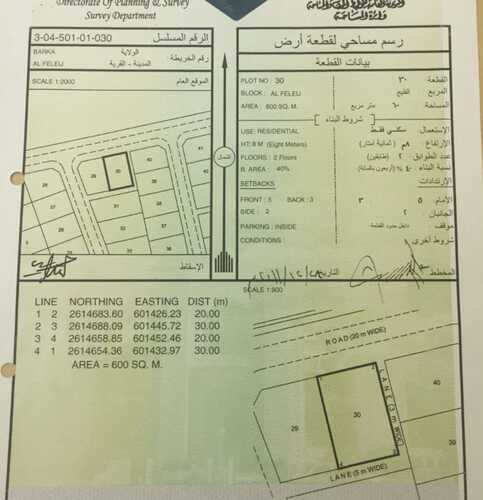 Directorate Of Planning & Survey
Survey Department
3-04-501-01-030
الرقم المسلسل
BARKA
الولاية
AL FELEIJ
المدينة - القرية
رقم الخريطة
SCALE 1:2000
الموقع العام
28
29
30
الشمال
الإسقاط
رسم مساحي لقطعة أرض
بيانات القطعة
PLOT NO : 30
القطعة : ٣٠
BLOCK : AL FELEIJ
المربع : الفليج
AREA : 600 SQ. M.
المساحة : ٦٠٠ متر مربع
شروط البناء
USE: RESIDENTIAL
الإستعمال: سكني فقط
HT: 8 M (Eight Meters)
الإرتفاع: ٨م (ثمانية أمتار)
FLOORS : 2 Floors
عدد الطوابق : ٢ (طابقين)
B. AREA : 40%
نسبة البناء : ٤٠% (أربعون بالمائة)
SETBACKS
الإرتدادات
FRONT : 5 BACK : 3
الأمام : ٥ ٣
SIDE : 2
الجانبان : ٢
PARKING : INSIDE
موقف: داخل حدود القطعة
CONDITIONS :
شروط أخرى :
المخطط
التاريخ
SCALE 1:500
LINE NORTHING EASTING DIST (m)
1 2 2614683.60 601426.23 20.00
2 3 2614688.09 601445.72 30.00
3 4 2614658.85 601452.46 20.00
4 1 2614654.36 601432.97 30.00
AREA = 600 SQ. M.
ROAD (20 m WIDE)
LANE (3 m WIDE)
29
30
40
39
2
LANE (5 m WIDE)